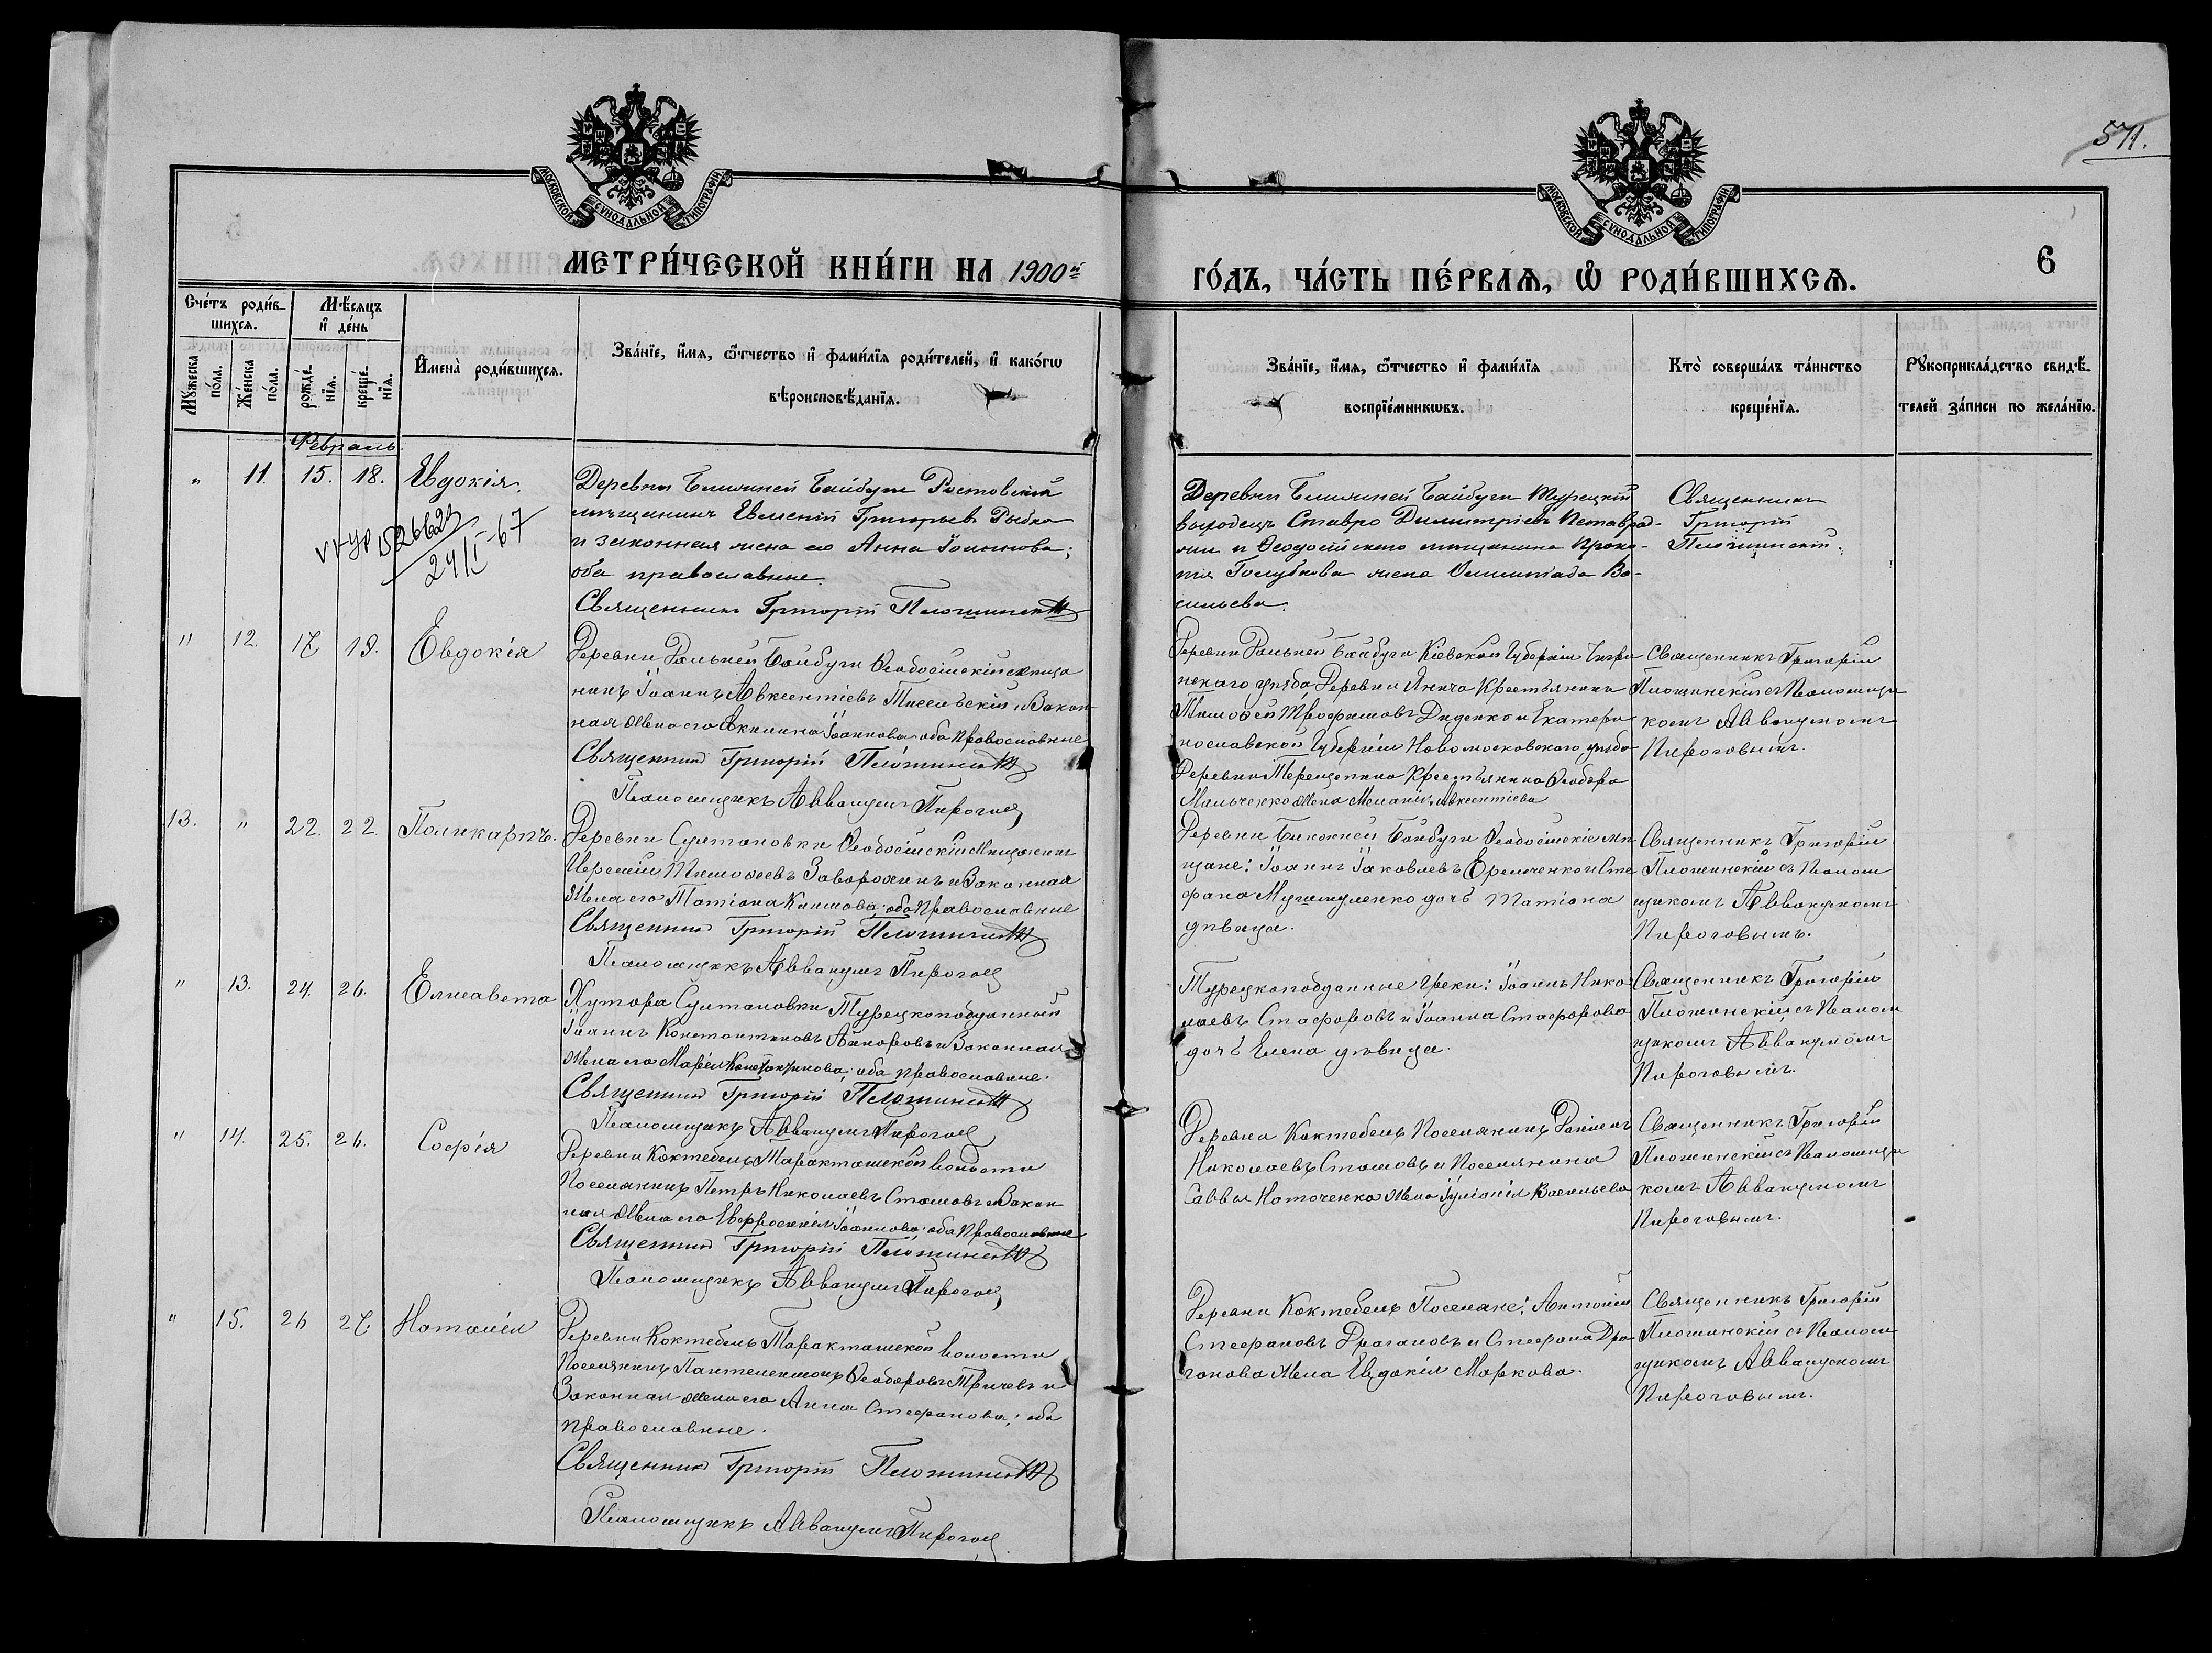 571.
МОСКОВСКОЙ СѴНОДАЛЬНОЙ ТИПОГРАФІИ
МОСКОВСКОЙ СѴНОДАЛЬНОЙ ТИПОГРАФІИ
МЕТРИ́ЧЕСКОЙ КНИ́ГИ НА 1900й
ГО́ДЪ, ЧА́СТЬ ПЕ́РВАѦ, Ѡ҆ РОДИ́ВШИХСѦ.
6
Сче́тъ роди́в-
шихсѧ.
Мꙋ́жеска по́ла.
Же́нска по́ла.
Мѣ́сѧцъ
и҆ де́нь
рожде́-
нїѧ.
креще́-
нїѧ.
И҆мена̀ роди́вшихсѧ.
Зва́нїе, и҆́мѧ, ѻ҆́тчество и҆ фами́лїѧ роди́телей, и҆ како́гѡ
вѣроисповѣ́данїѧ.
Зва́нїе, и҆́мѧ, ѻ҆́тчество и҆ фами́лїѧ
воспрїе́мникѡвъ.
Кто̀ соверша́лъ та́инство
креще́нїѧ.
Рꙋкоприкла́дство свидѣ́-
телей за́писи по жела́нїю.
Февраль
" 11. 15. 18. Евдокія.
24/I-67
Деревни Ближней Байбуги Ростовскій
мѣщанинъ Евменій Григорьевъ Рыбка
и законная жена его Анна Іоаннова;
оба православные.
Священникъ Григорій
Деревни Ближней Байбуги Турецкій
выходецъ Ставро Димитріевъ
и Ѳеодосійскаго мѣщанина Проко-
пія Голубкова жена Олимпіада Ва-
сильева.
Священникъ
Григорій
" 12. 17. 19. Евдокія
Деревни Дальней Байбуги Ѳеодосійскій мѣща
нинъ Іоаннъ Авксентіевъ и Закон-
ная Жена его Акилина Іоаннова оба Православные
Священникъ Григорій
Псаломщикъ Аввакумъ Пирогов
Деревни Дальней Байбуги Кіевской Губерніи Чиги
нскаго уѣзда Деревни Янича Крестьянинъ
Тимоѳей Трофимовъ Диденко и Екатери
нославской Губерніи Новомосковскаго уѣзда
Деревни Терещенина Крестьянина Ѳеодора
Мальченко Жена Меланія Авксентіева
Священникъ Григорій
съ Псаломщи
комъ Аввакумомъ
Пироговымъ.
13. " 22. 22. Поликарпъ.
Деревни Султановки Ѳеодосійскій Мѣщанинъ
Іеремій Тимоѳеевъ и Законная
Жена его Татіана Климова; оба Православные
Священникъ Григорій
Псаломщикъ Аввакумъ Пирогов
Деревни Ближней Байбуги Ѳеодосійскіе мѣ
щане: Іоаннъ Іаковлевъ Еремченко и Сте
фана дочь Татіана
дѣвица.
Священникъ Григорій
съ Псалом
щикомъ Аввакумомъ
Пироговымъ.
" 13. 24. 26. Елисавета
Хутора Султановки Турецкоподданный
Іоаннъ Константиновъ и Законная
Жена его Марія Константинова; оба православные.
Священникъ Григорій
Псаломщикъ Аввакумъ Пирогов
Турецкоподданные Греки: Іоаннъ Нико
лаевъ Стафоровъ и Іоанна Стафорова
дочь Елена дѣвица.
Священникъ Григорій
съ Псалом
щикомъ Аввакумомъ
Пироговымъ.
" 14. 25. 26. Софія
Деревни Коктебель Таракташской волости
Поселянинъ Петръ Николаевъ Стамовъ и Закон-
ная Жена его Евфросинія Іоаннова; оба Православные
Священникъ Григорій
Псаломщикъ Аввакумъ Пирогов
Деревни Коктебель Поселянинъ Даніилъ
Николаевъ Стамовъ и Поселянина
Саввы Жена Іуліанія Васильева
Священникъ Григорій
съ Псаломщи
комъ Аввакумомъ
Пироговымъ.
" 15. 26 27. Наталія
Деревни Коктебель Таракташской волости
Поселянинъ Пантелеимонъ Ѳеодоровъ и
Законная Жена его Анна Стефанова; оба
православные.
Священникъ Григорій
Псаломщикъ Аввакумъ Пирогов
Деревни Коктебель Поселяне: Антоній
Стефановъ Драгановъ и Стефана Дра
ганова Жена Евдокія Маркова.
Священникъ Григорій
съ Псалом
щикомъ Аввакумомъ
Пироговымъ.